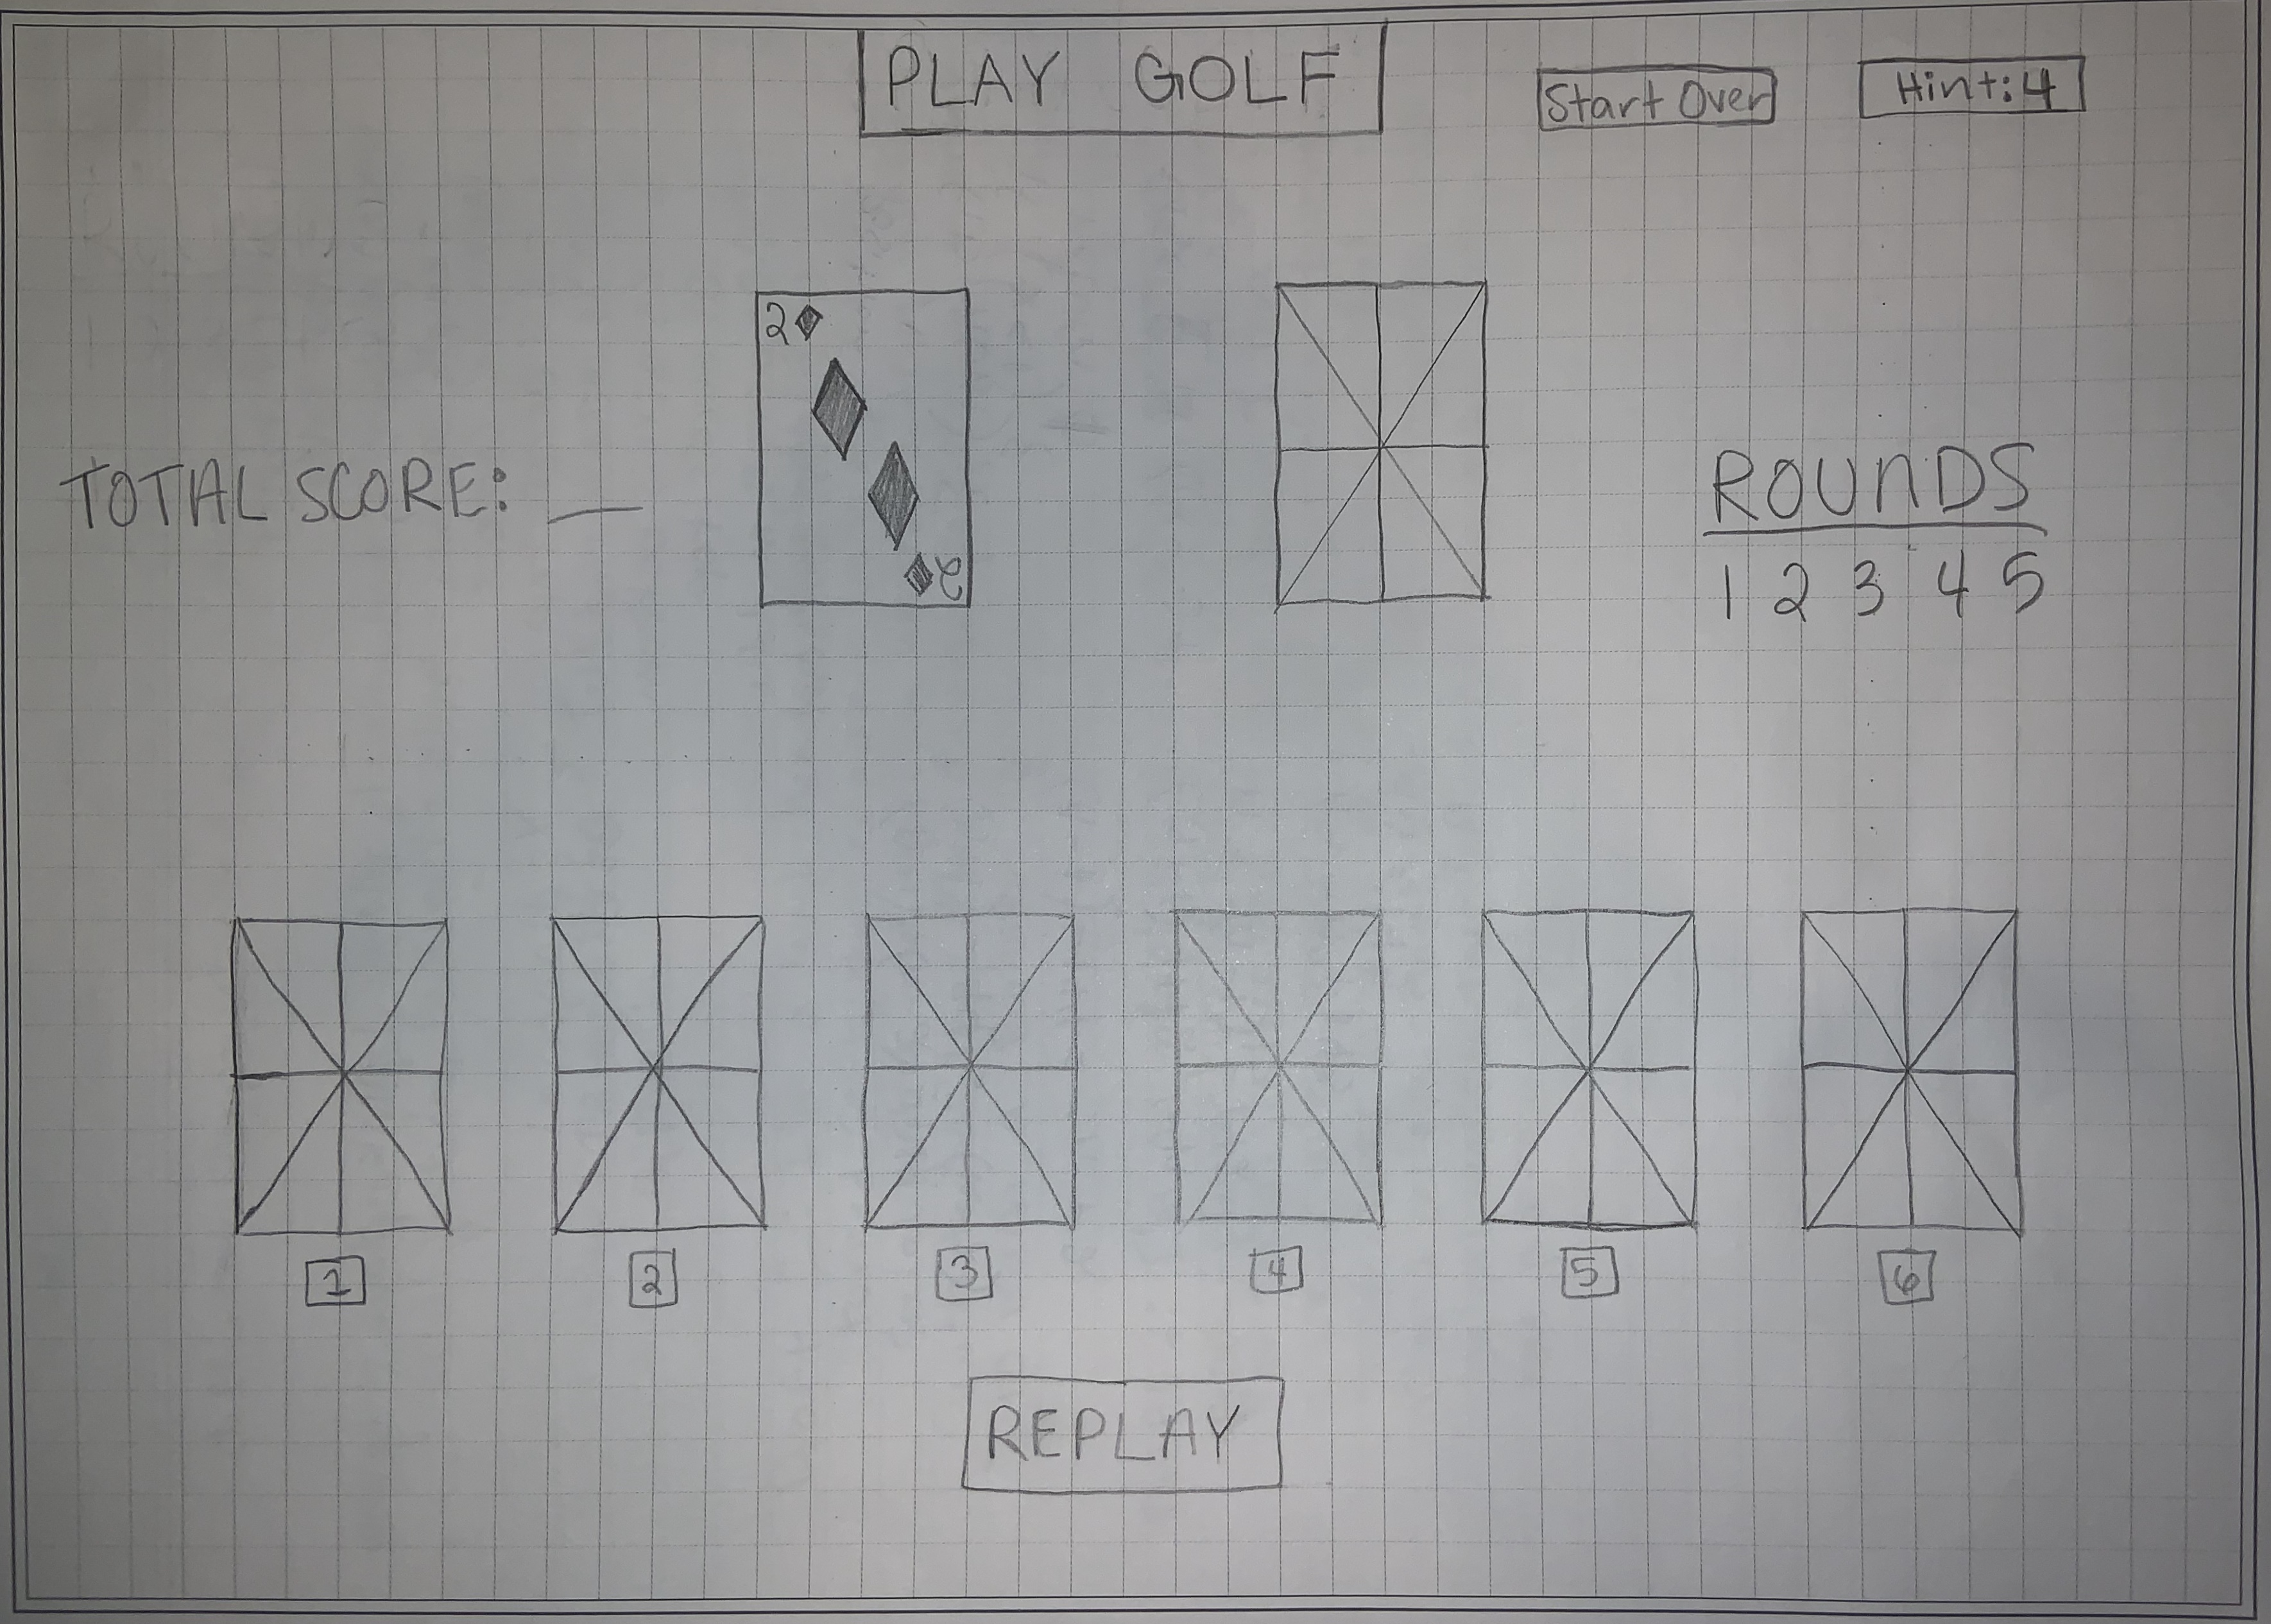 PLAY GOLF
Start Over
Hint: 4
2
2
TOTAL SCORE: __
ROUNDS
1 2 3 4 5
1
2
3
4
5
6
REPLAY